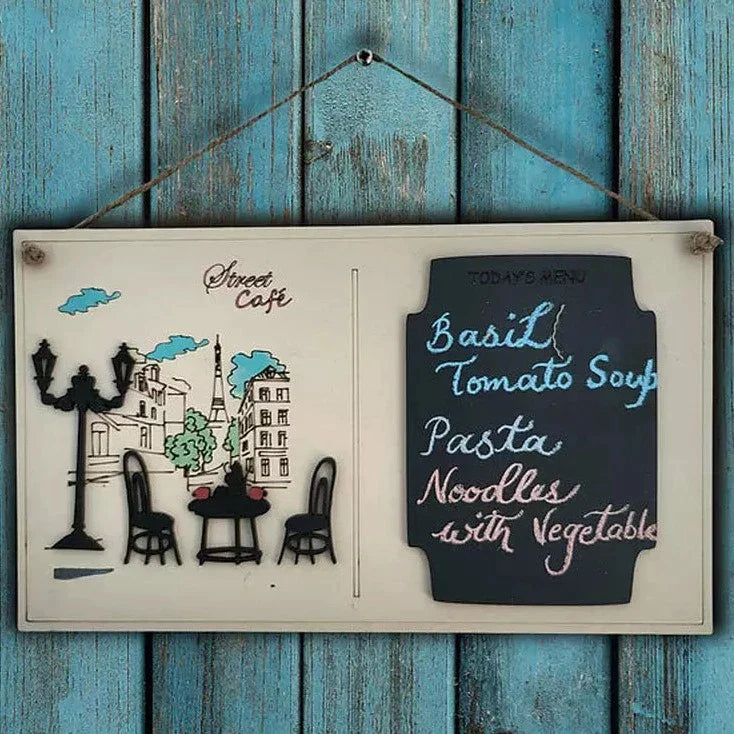 Street
Café
TODAY'S MENU
Basil
Tomato Soup
Pasta
Noodles
with Vegetable